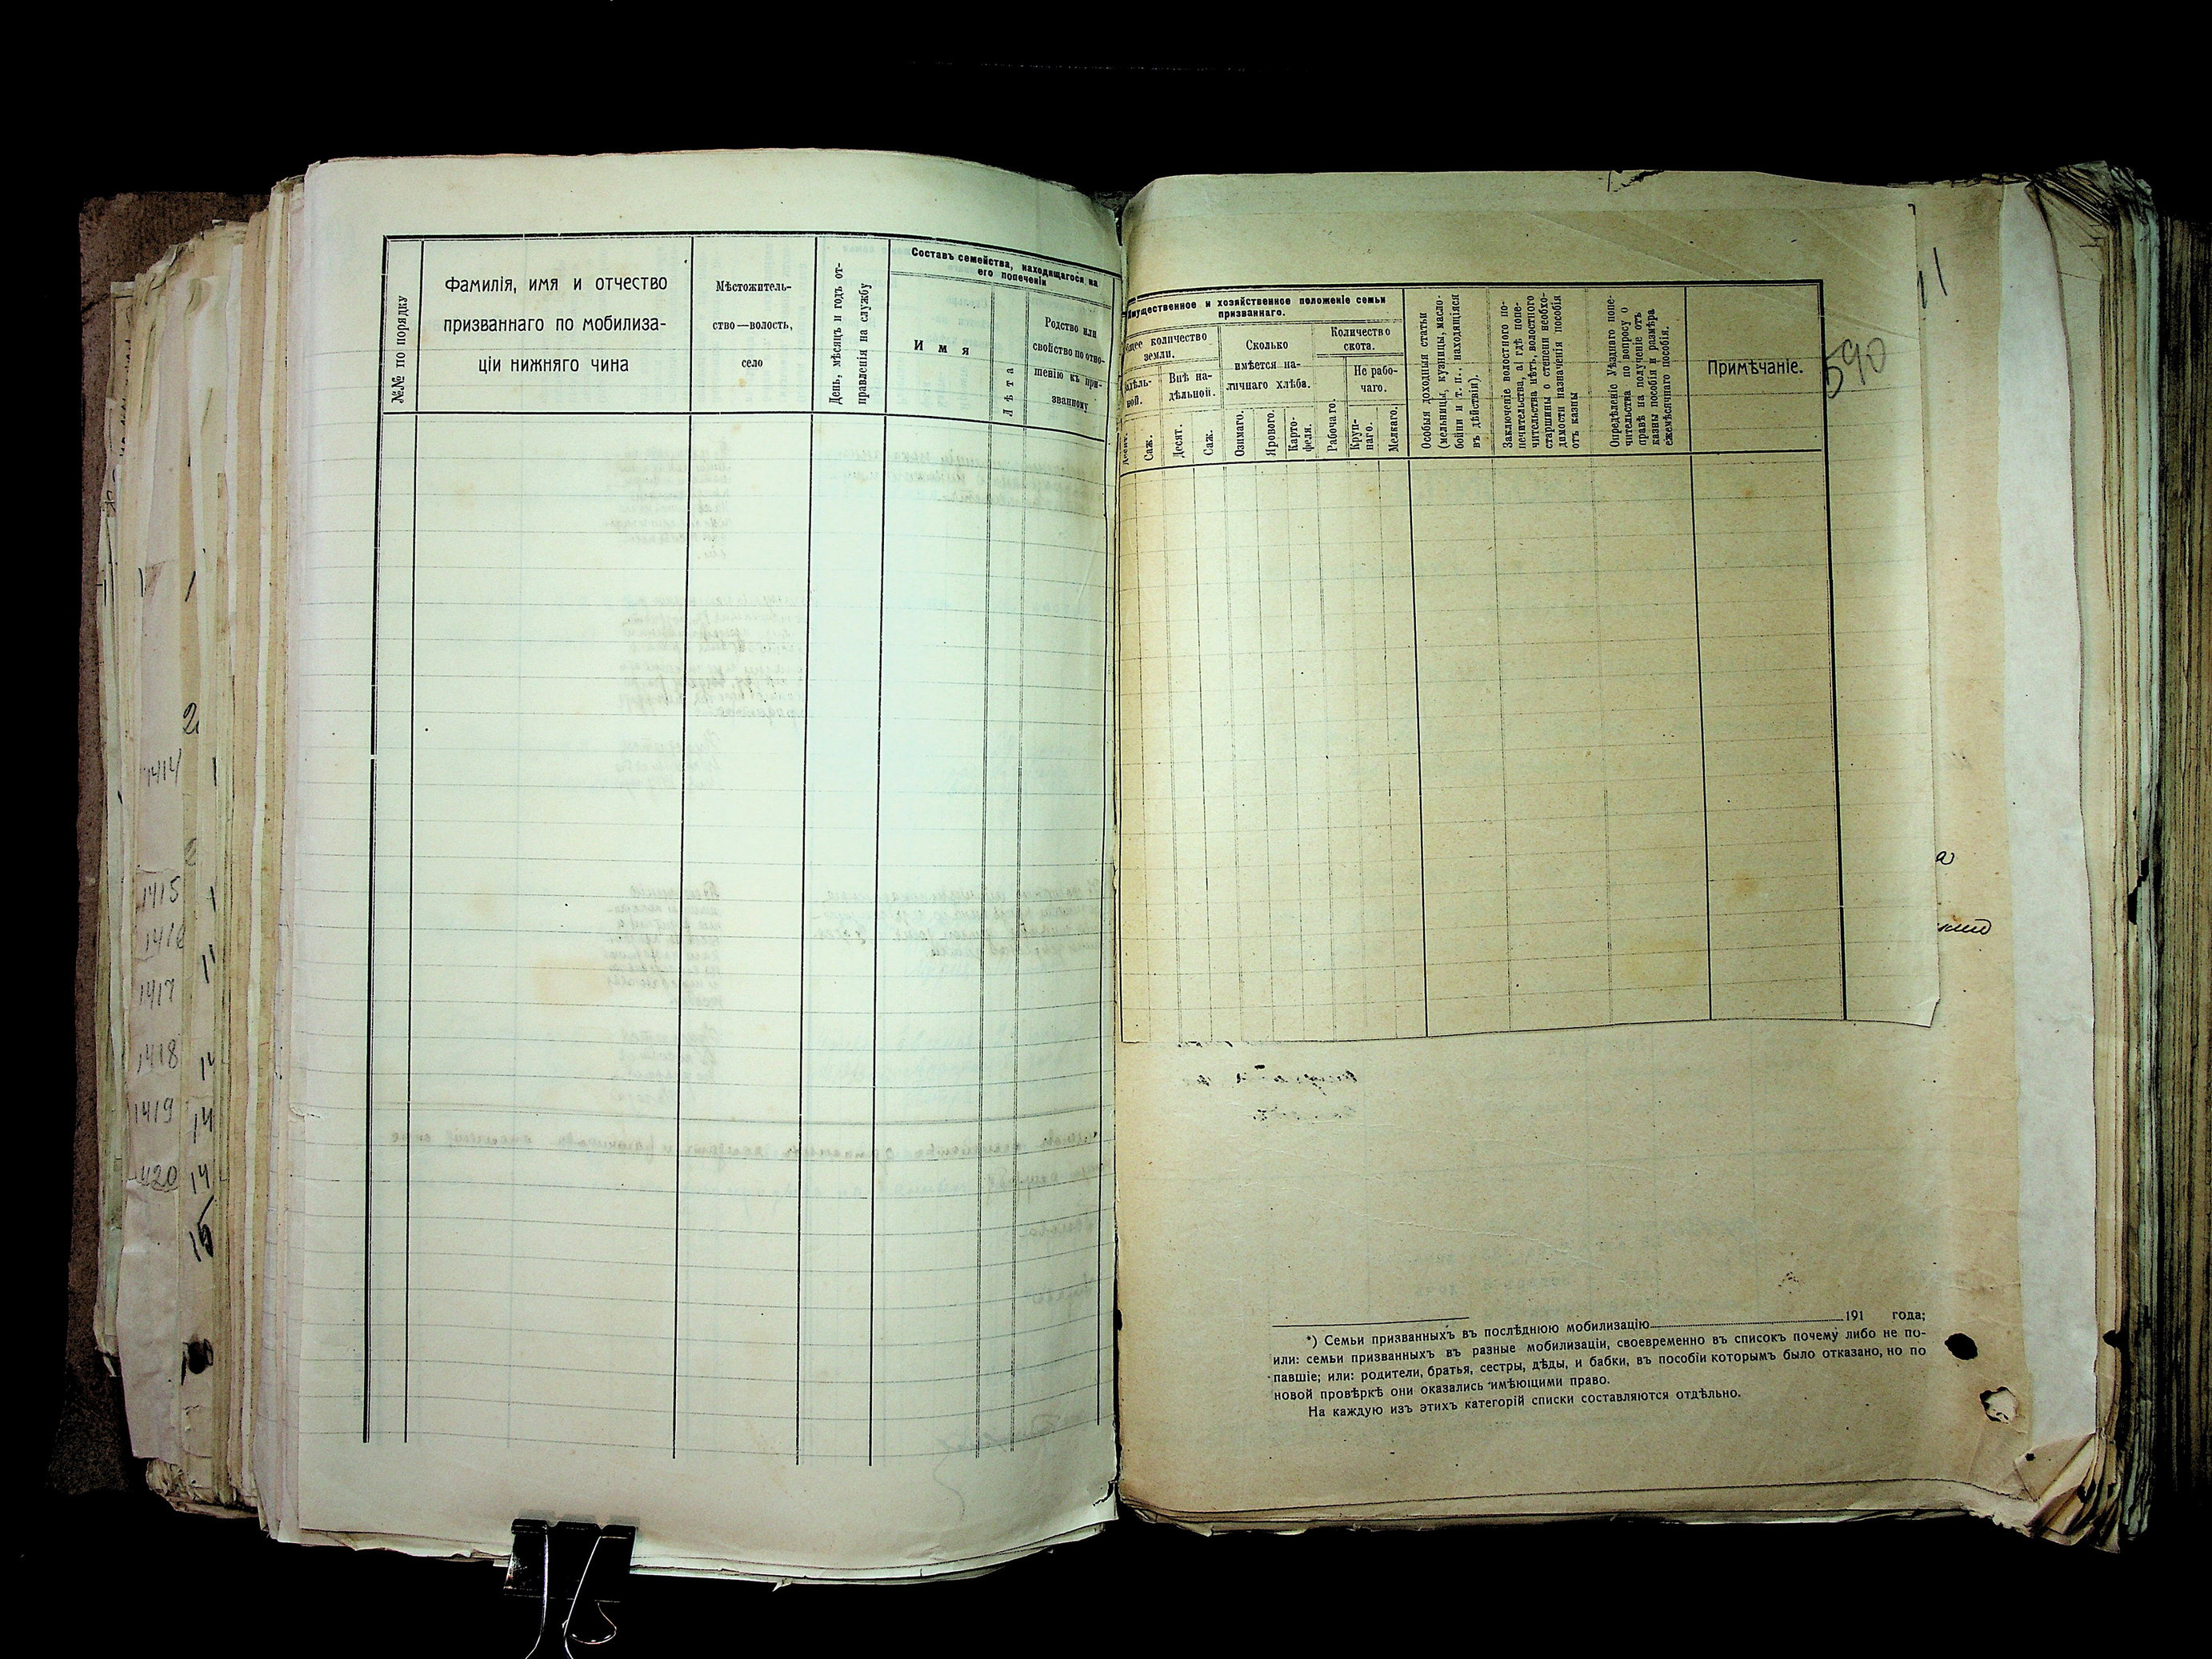 №№ по порядку
Фамилія, имя и отчество
призваннаго по мобилиза-
ціи нижняго чина
Мѣстожитель-
ство—волость,
село
День, мѣсяцъ и годъ от-
правленія на службу
Составъ семейства, находящагося на
его попеченіи
Имя
Лѣта
Родство или
свойство по отно-
шенію къ при-
званному
Имущественное и хозяйственное положеніе семьи
призваннаго.
количество
земли.
Десят.
Саж.
Внѣ на-
дѣльной.
Десят.
Саж.
Сколько
имѣется на-
личнаго хлѣба.
Озимаго.
Ярового.
Карто-
феля.
Количество
скота.
Рабочаго.
Не рабо-
чаго.
Круп-
наго.
Мелкаго.
Особыя доходныя статьи
(мельницы, кузницы, масло-
бойни и т. п., находящіяся
въ дѣйствіи).
Заключеніе волостного по-
печительства, а гдѣ попе-
чительства нѣтъ, волостного
старшины о степени необхо-
димости назначенія пособія
отъ казны
Опредѣленіе Уѣзднаго попе-
чительства по вопросу о
правѣ на полученіе отъ
казны пособія и размѣра
ежемѣсячнаго пособія.
Примѣчаніе.
590
2
1414
1415
1416
1417
1418
14
1419
14
1420
14
15
*) Семьи призванныхъ въ послѣднюю мобилизацію 191 года;
или: семьи призванныхъ въ разные мобилизаціи, своевременно въ списокъ почему либо не по-
павшіе; или: родители, братья, сестры, дѣды, и бабки, въ пособіи которымъ было отказано, но по
новой провѣркѣ они оказались имѣющими право.
На каждую изъ этихъ категорій списки составляются отдѣльно.